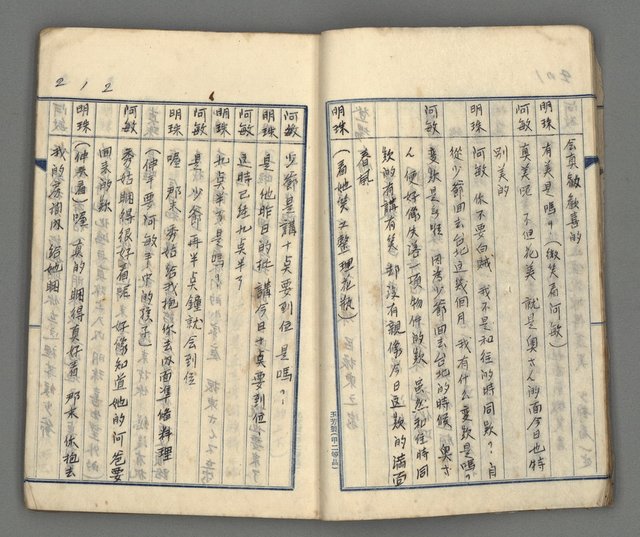 会真歡歡喜的
明珠 有美是嗎?(微笑看阿敏)
阿敏 真美呢 不但花美 就是奥さん的面今日也特
別美的
明珠 阿敏 你不要白賊 我不是和往的時同款?自
從少爺回去台北這幾個月 我有什么變款是嗎?
阿敏 變款是 因為少爺回去台北的時候 奥さ
ん便好像失落一項物件的款 雖然和往時同
款的有講有笑 却沒有親像今日這款的満面
春風
明珠 (看她笑工整理花瓶)
阿敏 少爺是講十点要到位是嗎?
明珠 是 他昨日的批講今日十点要到位
這時已經九点半了
阿敏 九点半了是嗎?
明珠 是 少爺再半点鐘就会到位
阿敏 喔 那末 秀姑給我抱 你去內面準備料理
明珠 (伸手要阿敏手中的孩子)
阿敏 秀姑睏得很好看呢 好像知道她的阿爸要
回來的款
明珠 (伸來看)嘿 真的睏得真好看 那末 你抱去
阿敏 我的房間內給她睏
2 1 2